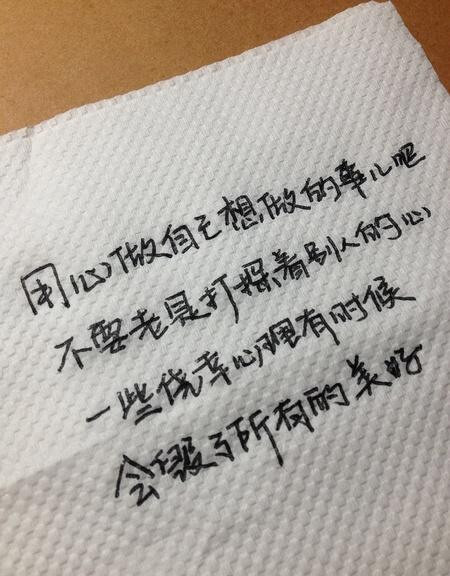 用心做自己想做的事儿吧
不要老是打探着别人的心
一些侥幸心理有时候
会毁了所有的美好